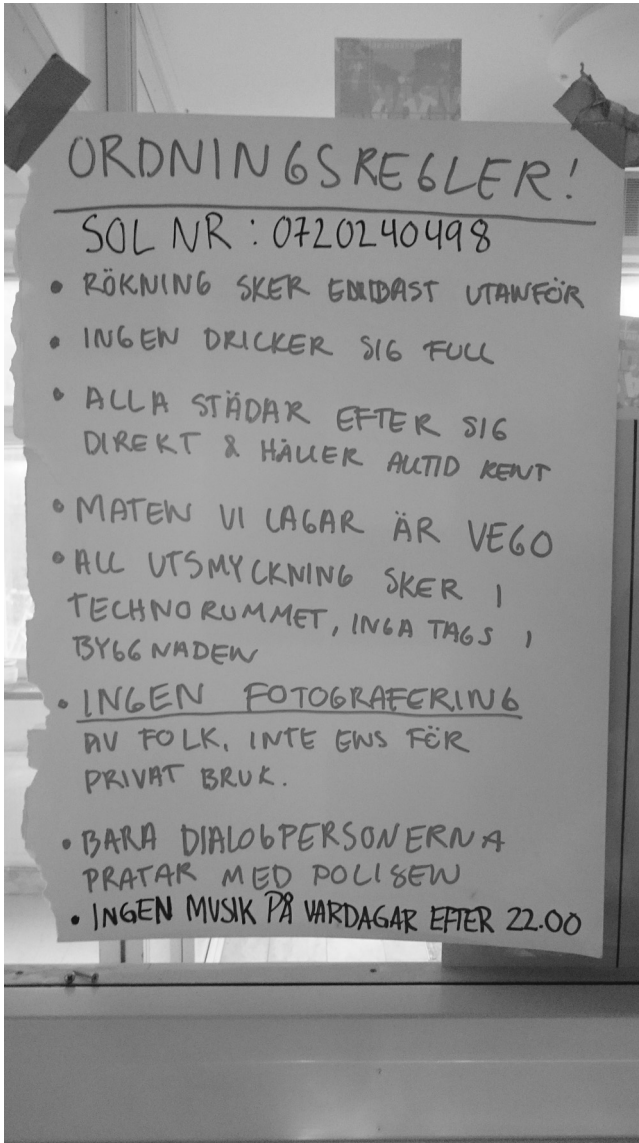 ORDNINGSREGLER!
SOL NR: 0720240498
• RÖKNING SKER ENDAST UTANFÖR
• INGEN DRICKER SIG FULL
• ALLA STÄDAR EFTER SIG
DIREKT & HÅLLER ALLTID RENT
• MATEN VI LAGAR ÄR VEGO
• ALL UTSMYCKNING SKER I
TECHNORUMMET, INGA TAGS I
BYGGNADEN
• INGEN FOTOGRAFERING
AV FOLK. INTE ENS FÖR
PRIVAT BRUK.
• BARA DIALOGPERSONERNA
PRATAR MED POLISEN
• INGEN MUSIK PÅ VARDAGAR EFTER 22.00